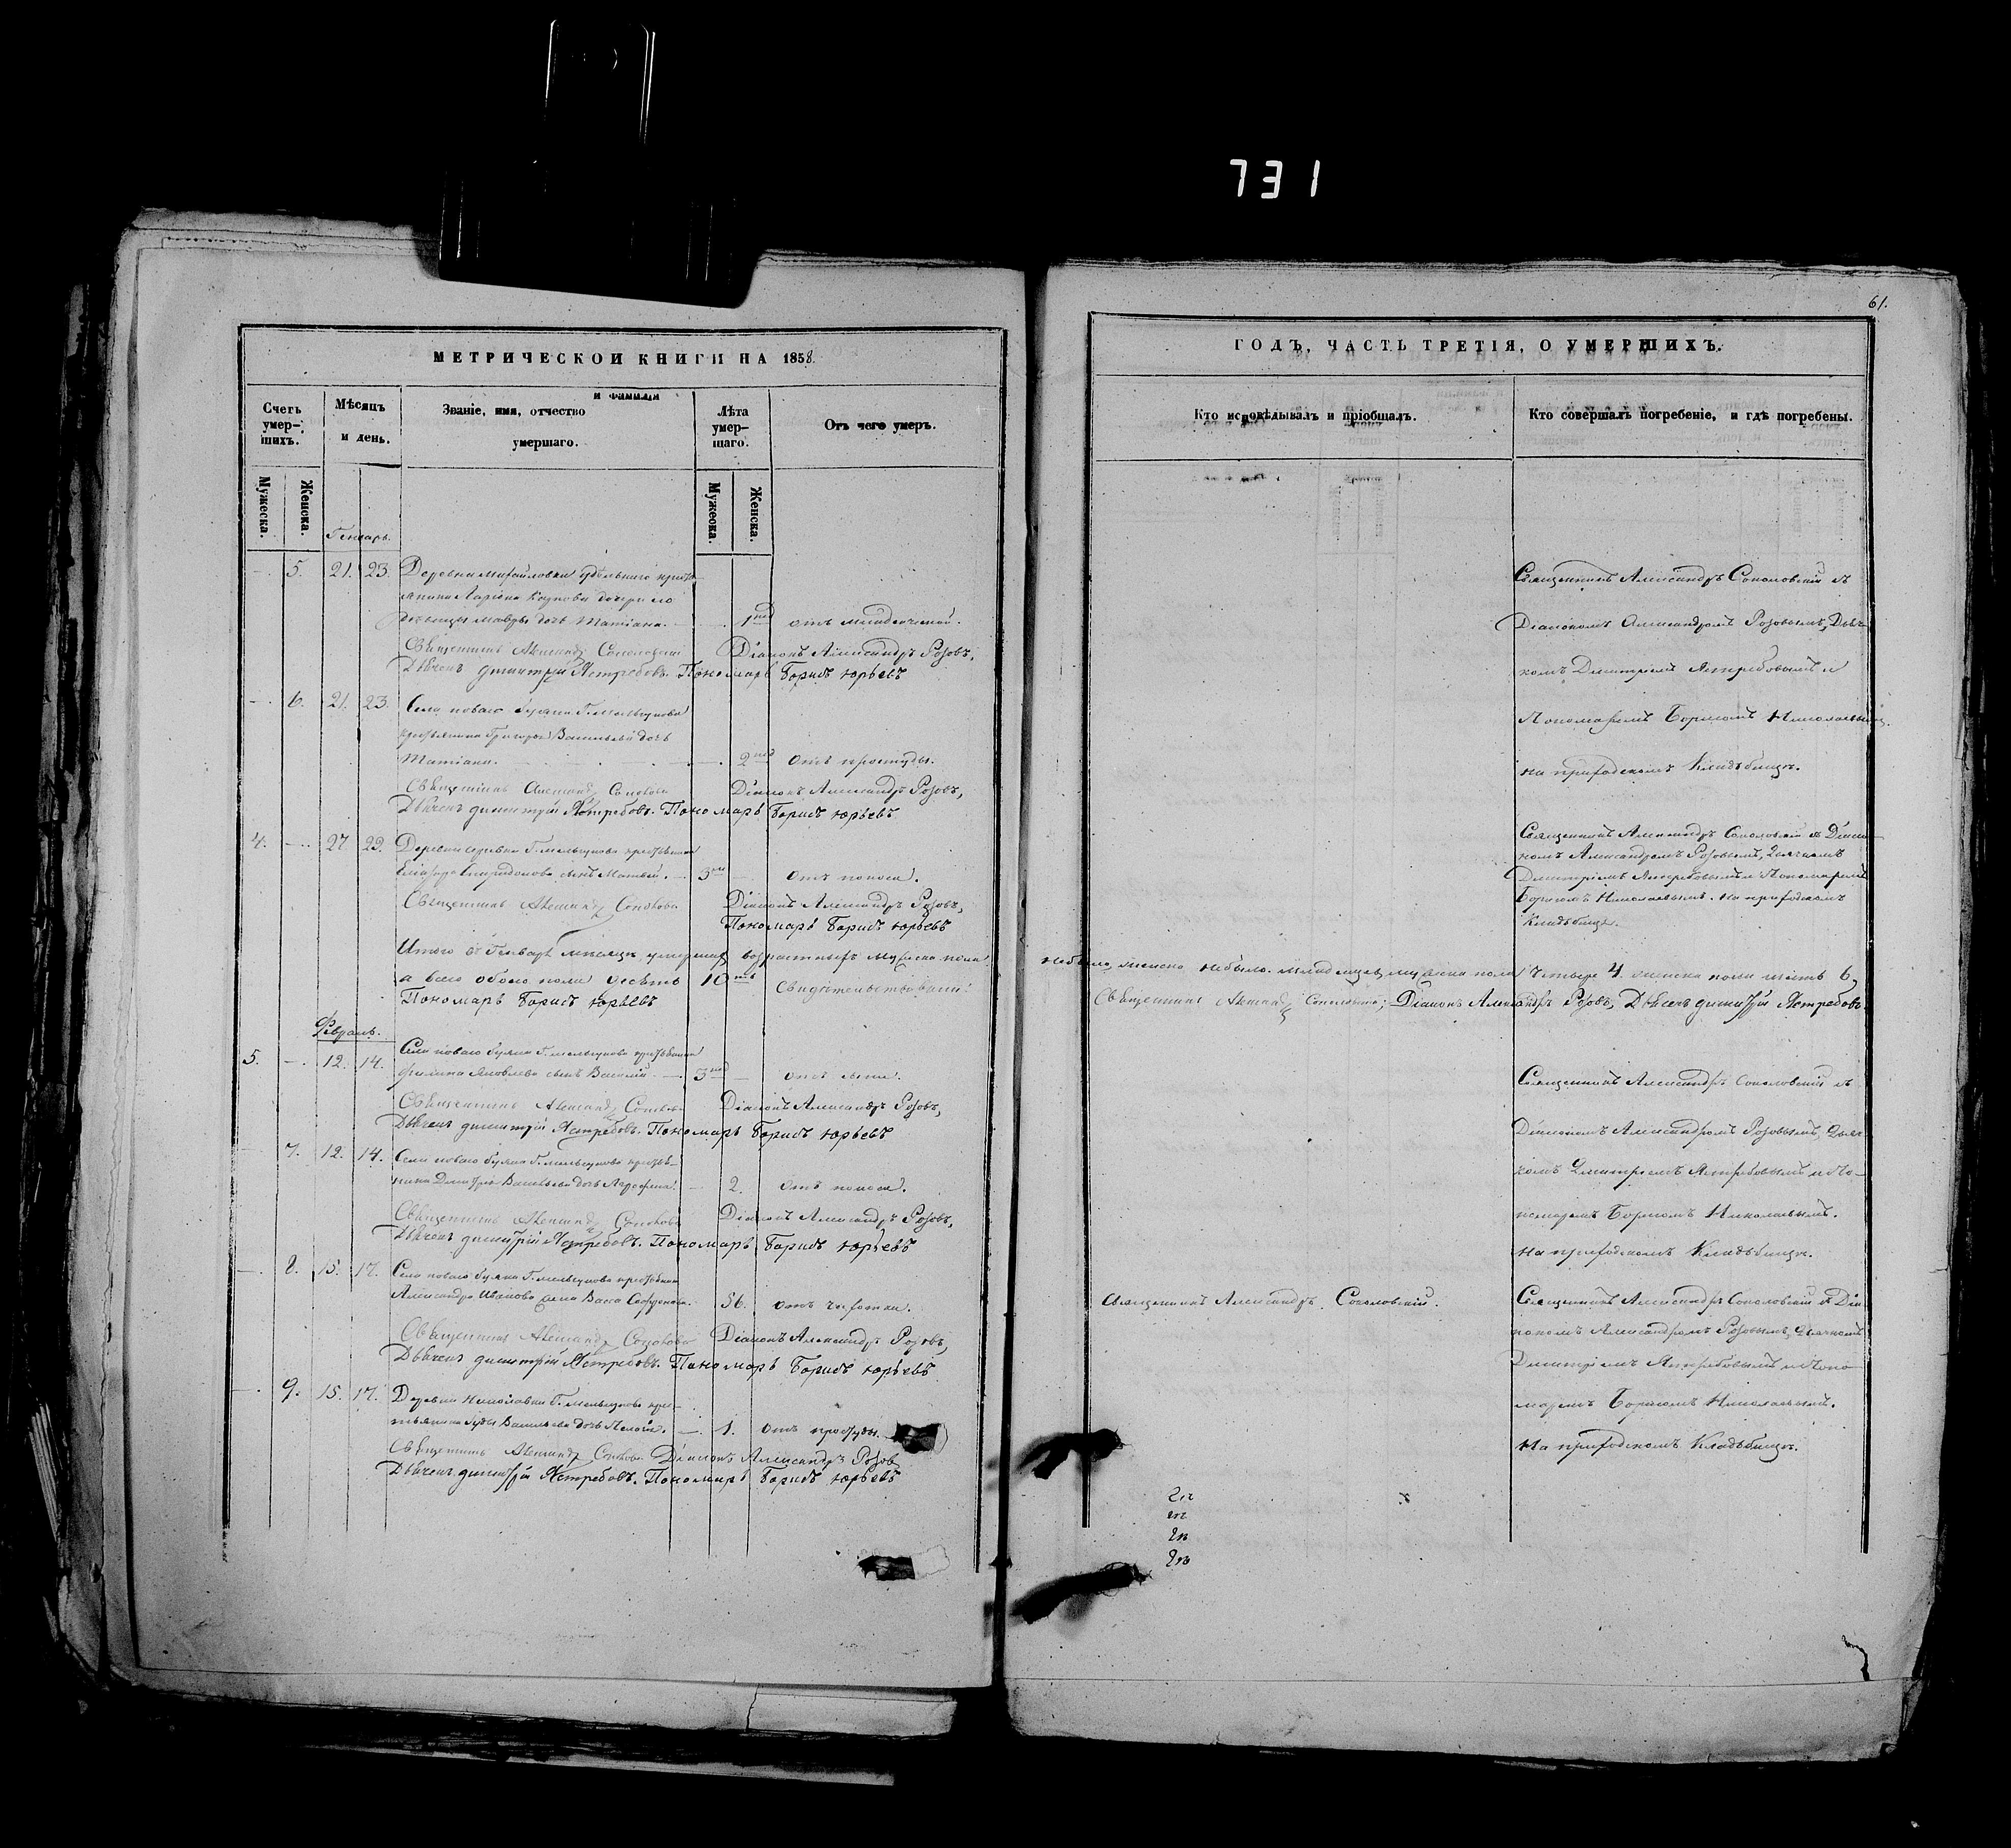 731
61.
МЕТРИЧЕСКОЙ КНИГИ НА 1858.
Счетъ умер-шихъ.
Мѣсяцъ и день.
Званіе, имя, отчество и фамилія умершаго.
Лѣта умер-шаго.
Отъ чего умеръ.
Мужеска.
Женска.
Мужеска.
Женска.
Генварь.
5. 21. 23. Деревни Михайловки удѣльнаго кресть-
янина дочери ея
дѣвицы Мавры дочь Татіана. 1
Священникъ Александръ Соколовскій Діаконъ Александръ Розовъ,
Дьячекъ Димитрій Ястребовъ. Пономарь Борисъ Юрьевъ
6. 21. 23. Села новаго Буяна Г. Мельгунова
крестьянина Григорья Васильева дочь
Татіана. 2 отъ простуды.
Священникъ Александръ Діаконъ Александръ Розовъ,
Дьячекъ Димитрій Ястребовъ. Пономарь Борисъ Юрьевъ
4. 27. 29. Деревни Г. Мельгунова крестьянина
Спиридонова сынъ Матвей. 3 отъ поноса.
Священникъ Александръ Діаконъ Александръ Розовъ,
Пономарь Борисъ Юрьевъ
Итого въ Генварѣ мѣсяцѣ умершихъ возрастныхъ мужеска пола
а всего обоего пола десять 10 Свидѣтельствовали:
Пономарь Борисъ Юрьевъ
Февраль.
5. 12. 14. Села новаго Буяна Г. Мельгунова крестьянина
Филипа Яковлева сынъ Василій 3
Священникъ Александръ Діаконъ Александръ Розовъ,
Дьячекъ Димитрій Ястребовъ. Пономарь Борисъ Юрьевъ
7. 12. 14. Села новаго Буяна Г. Мельгунова крестья-
нина Димитрія Васильева дочь 2. отъ поноса.
Священникъ Александръ Діаконъ Александръ Розовъ,
Дьячекъ Димитрій Ястребовъ. Пономарь Борисъ Юрьевъ
8. 15. 17. Села новаго Буяна Г. Мельгунова крестьянина
Александра Иванова жена Васса 56. отъ чахотки.
Священникъ Александръ Діаконъ Александръ Розовъ,
Дьячекъ Димитрій Ястребовъ. Пономарь Борисъ Юрьевъ
9. 15. 17. Деревни Николаевки Г. Мельгунова крес-
тьянина Васильева дочь 1. отъ простуды.
Священникъ Александръ Діаконъ Александръ Розовъ
Дьячекъ Димитрій Ястребовъ. Пономарь Борисъ Юрьевъ
ГОДЪ, ЧАСТЬ ТРЕТІЯ, О УМЕРШИХЪ.
Кто исповѣдывалъ и пріобщалъ.
Кто совершалъ погребеніе, и гдѣ погребены.
Священникъ Александръ Соколовскій съ
Діакономъ Александромъ Розовымъ, Дьяч-
комъ Димитріемъ Ястребовымъ и
Пономаремъ Борисомъ Николаевымъ
на приходскомъ Кладбищѣ.
Священникъ Александръ Соколовскій съ Діако-
номъ Александромъ Розовымъ, Дьячкомъ
Димитріемъ Ястребовымъ и Пономаремъ
Борисомъ Николаевымъ. на приходскомъ
Кладбищѣ.
небыло, женска небыло. младенцевъ мужеска пола четыре 4. женска пола шесть 6,
Священникъ Александръ Соколовскій; Діаконъ Александръ Розовъ, Дьячекъ Димитрій Ястребовъ.
Священникъ Александръ Соколовскій съ
Діакономъ Александромъ Розовымъ, Дьяч-
комъ Димитріемъ Ястребовымъ и По-
номаремъ Борисомъ Николаевымъ.
на приходскомъ Кладбищѣ.
Священникъ Александръ Соколовскій.
Священникъ Александръ Соколовскій съ Діа-
кономъ Александромъ Розовымъ, Дьячкомъ
Димитріемъ Ястребовымъ и Поно-
маремъ Борисомъ Николаевымъ.
на приходскомъ Кладбищѣ.